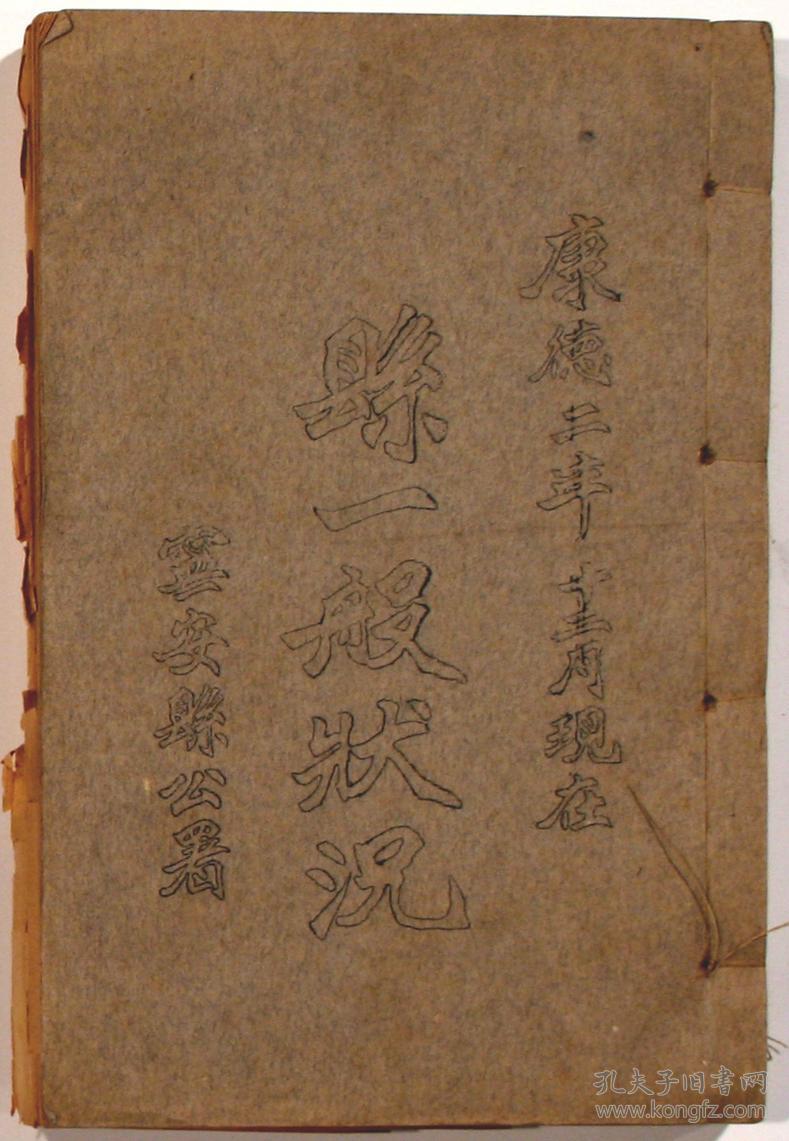 康德二年十二月現在
縣一般狀況
寧安縣公署
孔夫子旧书网
www.kongfz.com